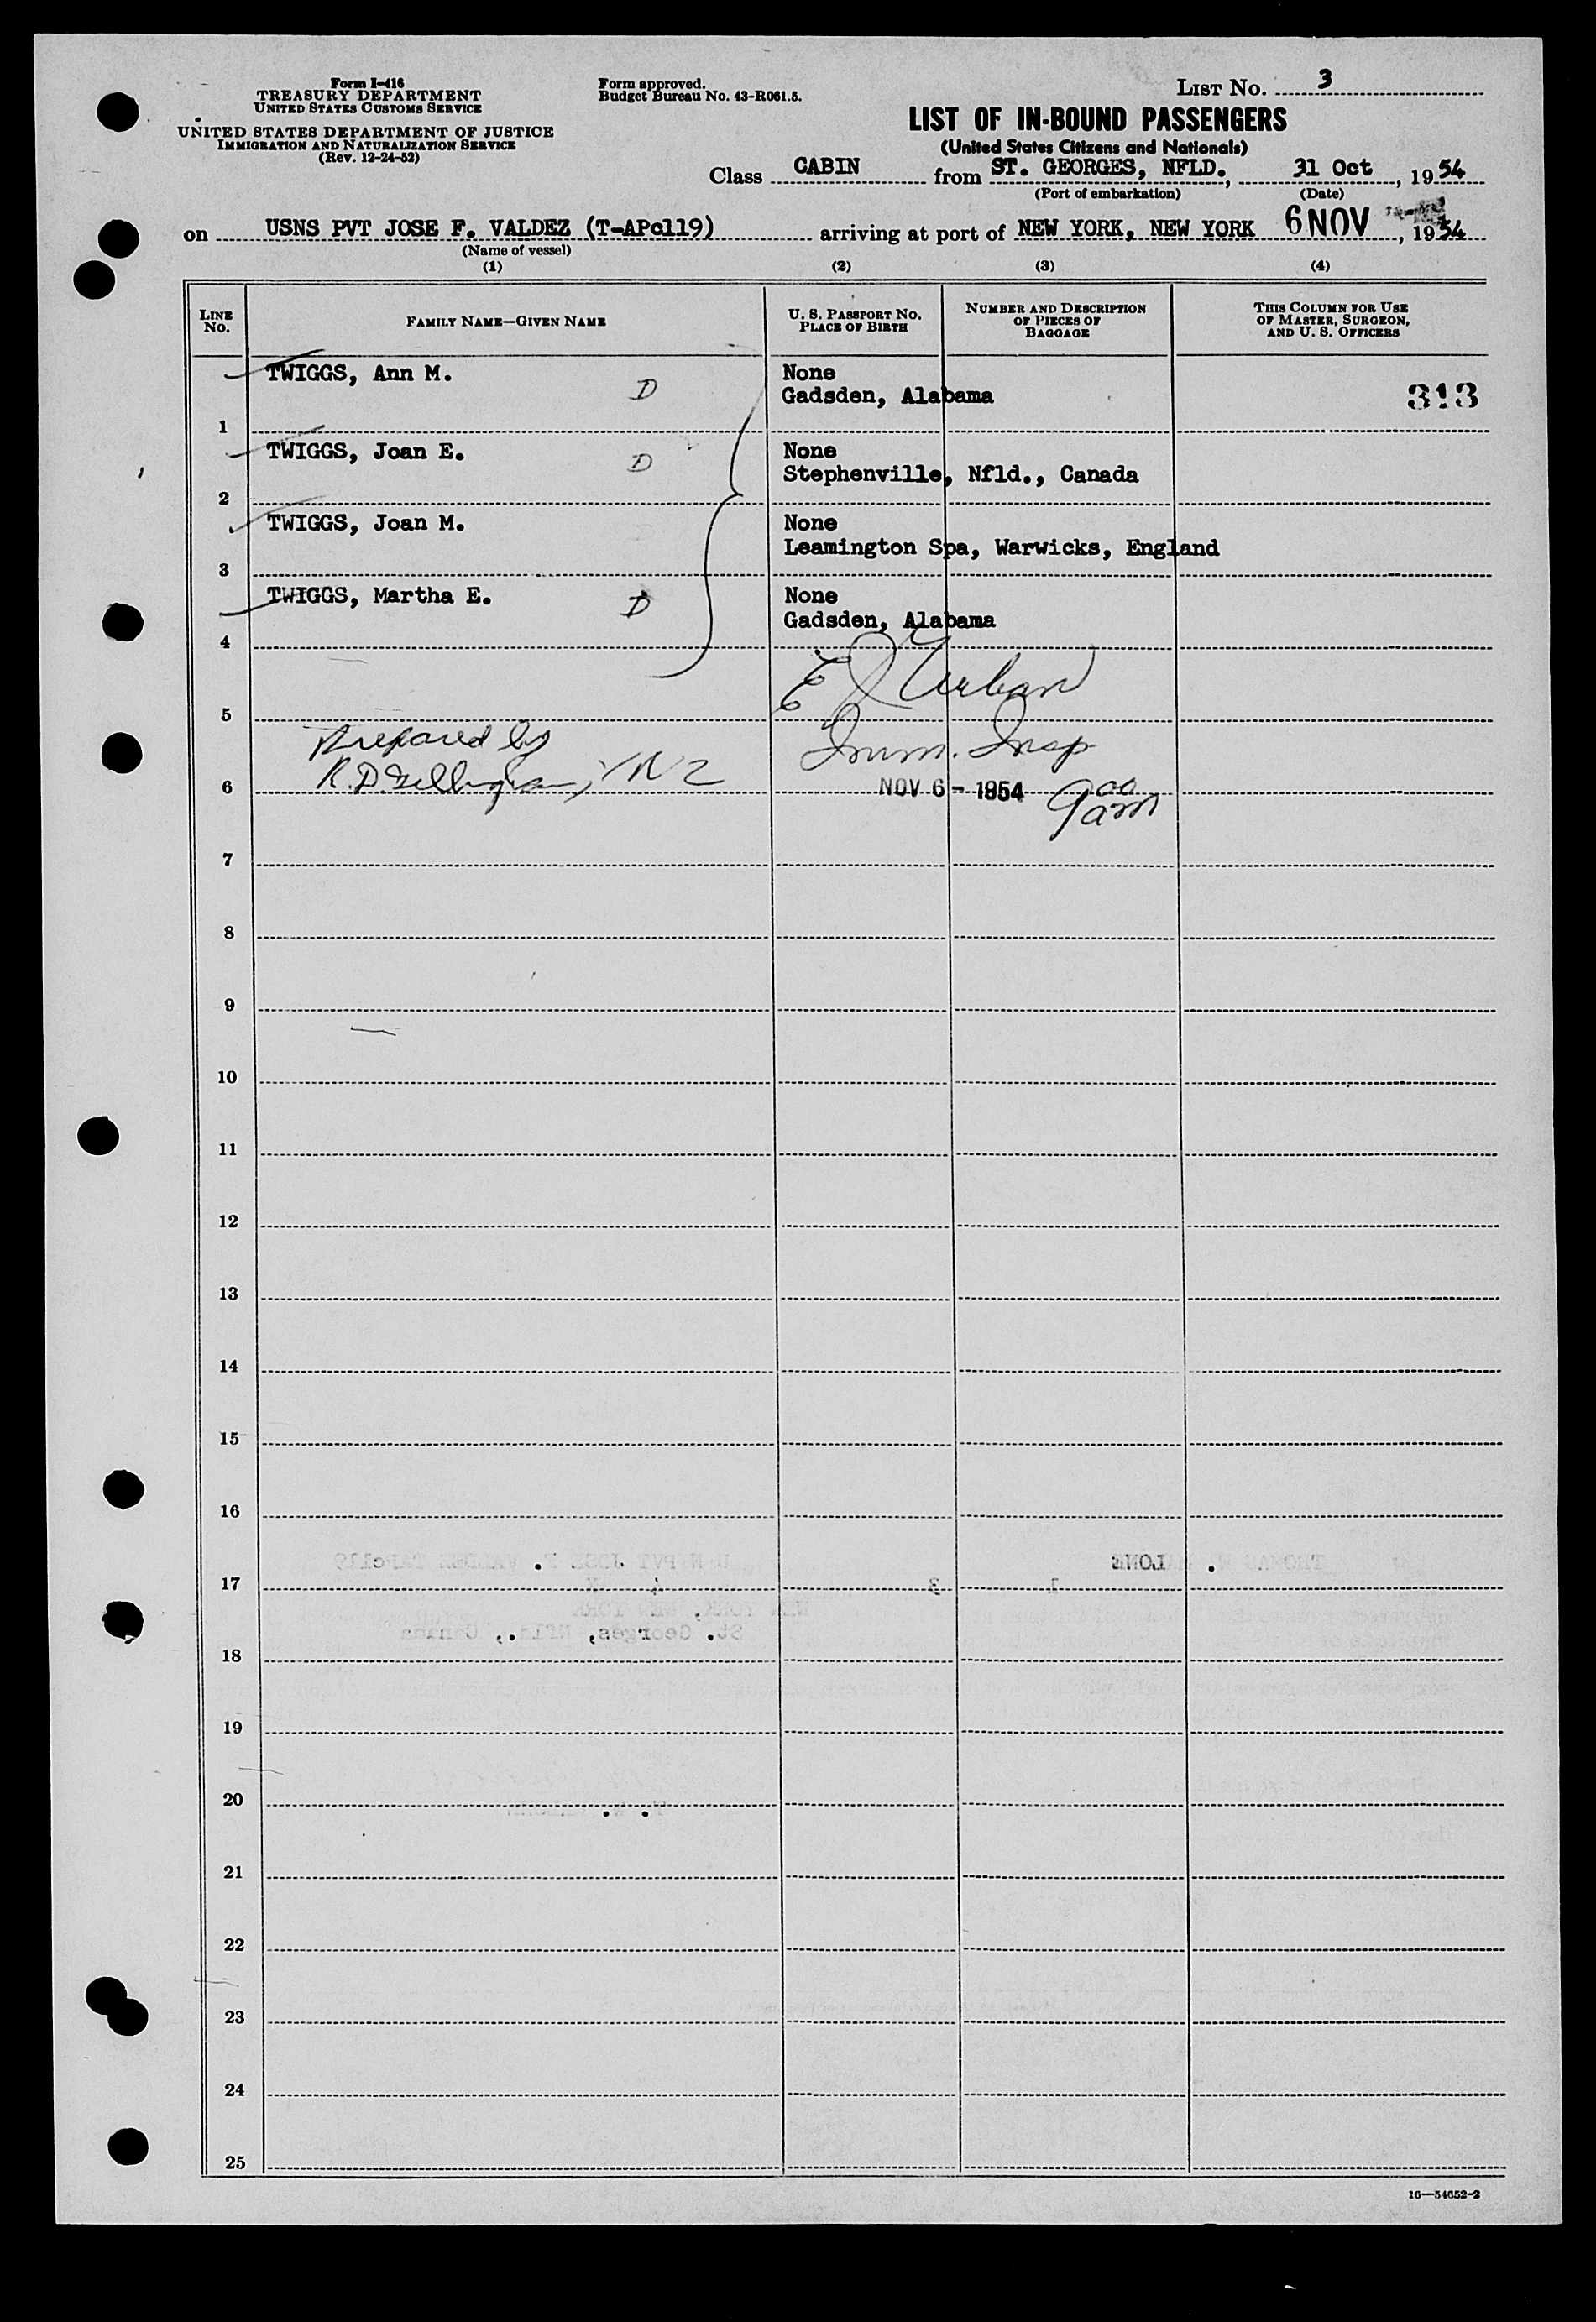 Form I-416
TREASURY DEPARTMENT
UNITED STATES CUSTOMS SERVICE
UNITED STATES DEPARTMENT OF JUSTICE
IMMIGRATION AND NATURALIZATION SERVICE
(Rev. 12-24-52)
Form approved.
Budget Bureau No. 43-R061.5.
LIST NO. 3
LIST OF IN-BOUND PASSENGERS
(United States Citizens and Nationals)
Class CABIN from ST. GEORGES, NFLD., 31 Oct, 1954
(Port of embarkation) (Date)
on USNS PVT JOSE F. VALDEZ (T-APc119) arriving at port of NEW YORK, NEW YORK 6 NOV, 1954
(Name of vessel)
(1) (2) (3) (4)
LINE NO. FAMILY NAME—GIVEN NAME U. S. PASSPORT NO. PLACE OF BIRTH NUMBER AND DESCRIPTION OF PIECES OF BAGGAGE THIS COLUMN FOR USE OF MASTER, SURGEON, AND U. S. OFFICERS
TWIGGS, Ann M. D None
Gadsden, Alabama 313
1
TWIGGS, Joan E. D None
Stephenville, Nfld., Canada
2
TWIGGS, Joan M. None
Leamington Spa, Warwicks, England
3
TWIGGS, Martha E. D None
Gadsden, Alabama
4
E J Urban
5
Prepared by Imm. Insp
R.D. YN2
6 NOV 6 - 1954 9 00 am
7
8
9
10
11
12
13
14
15
16
17
18
19
20
21
22
23
24
25
16—54652-2